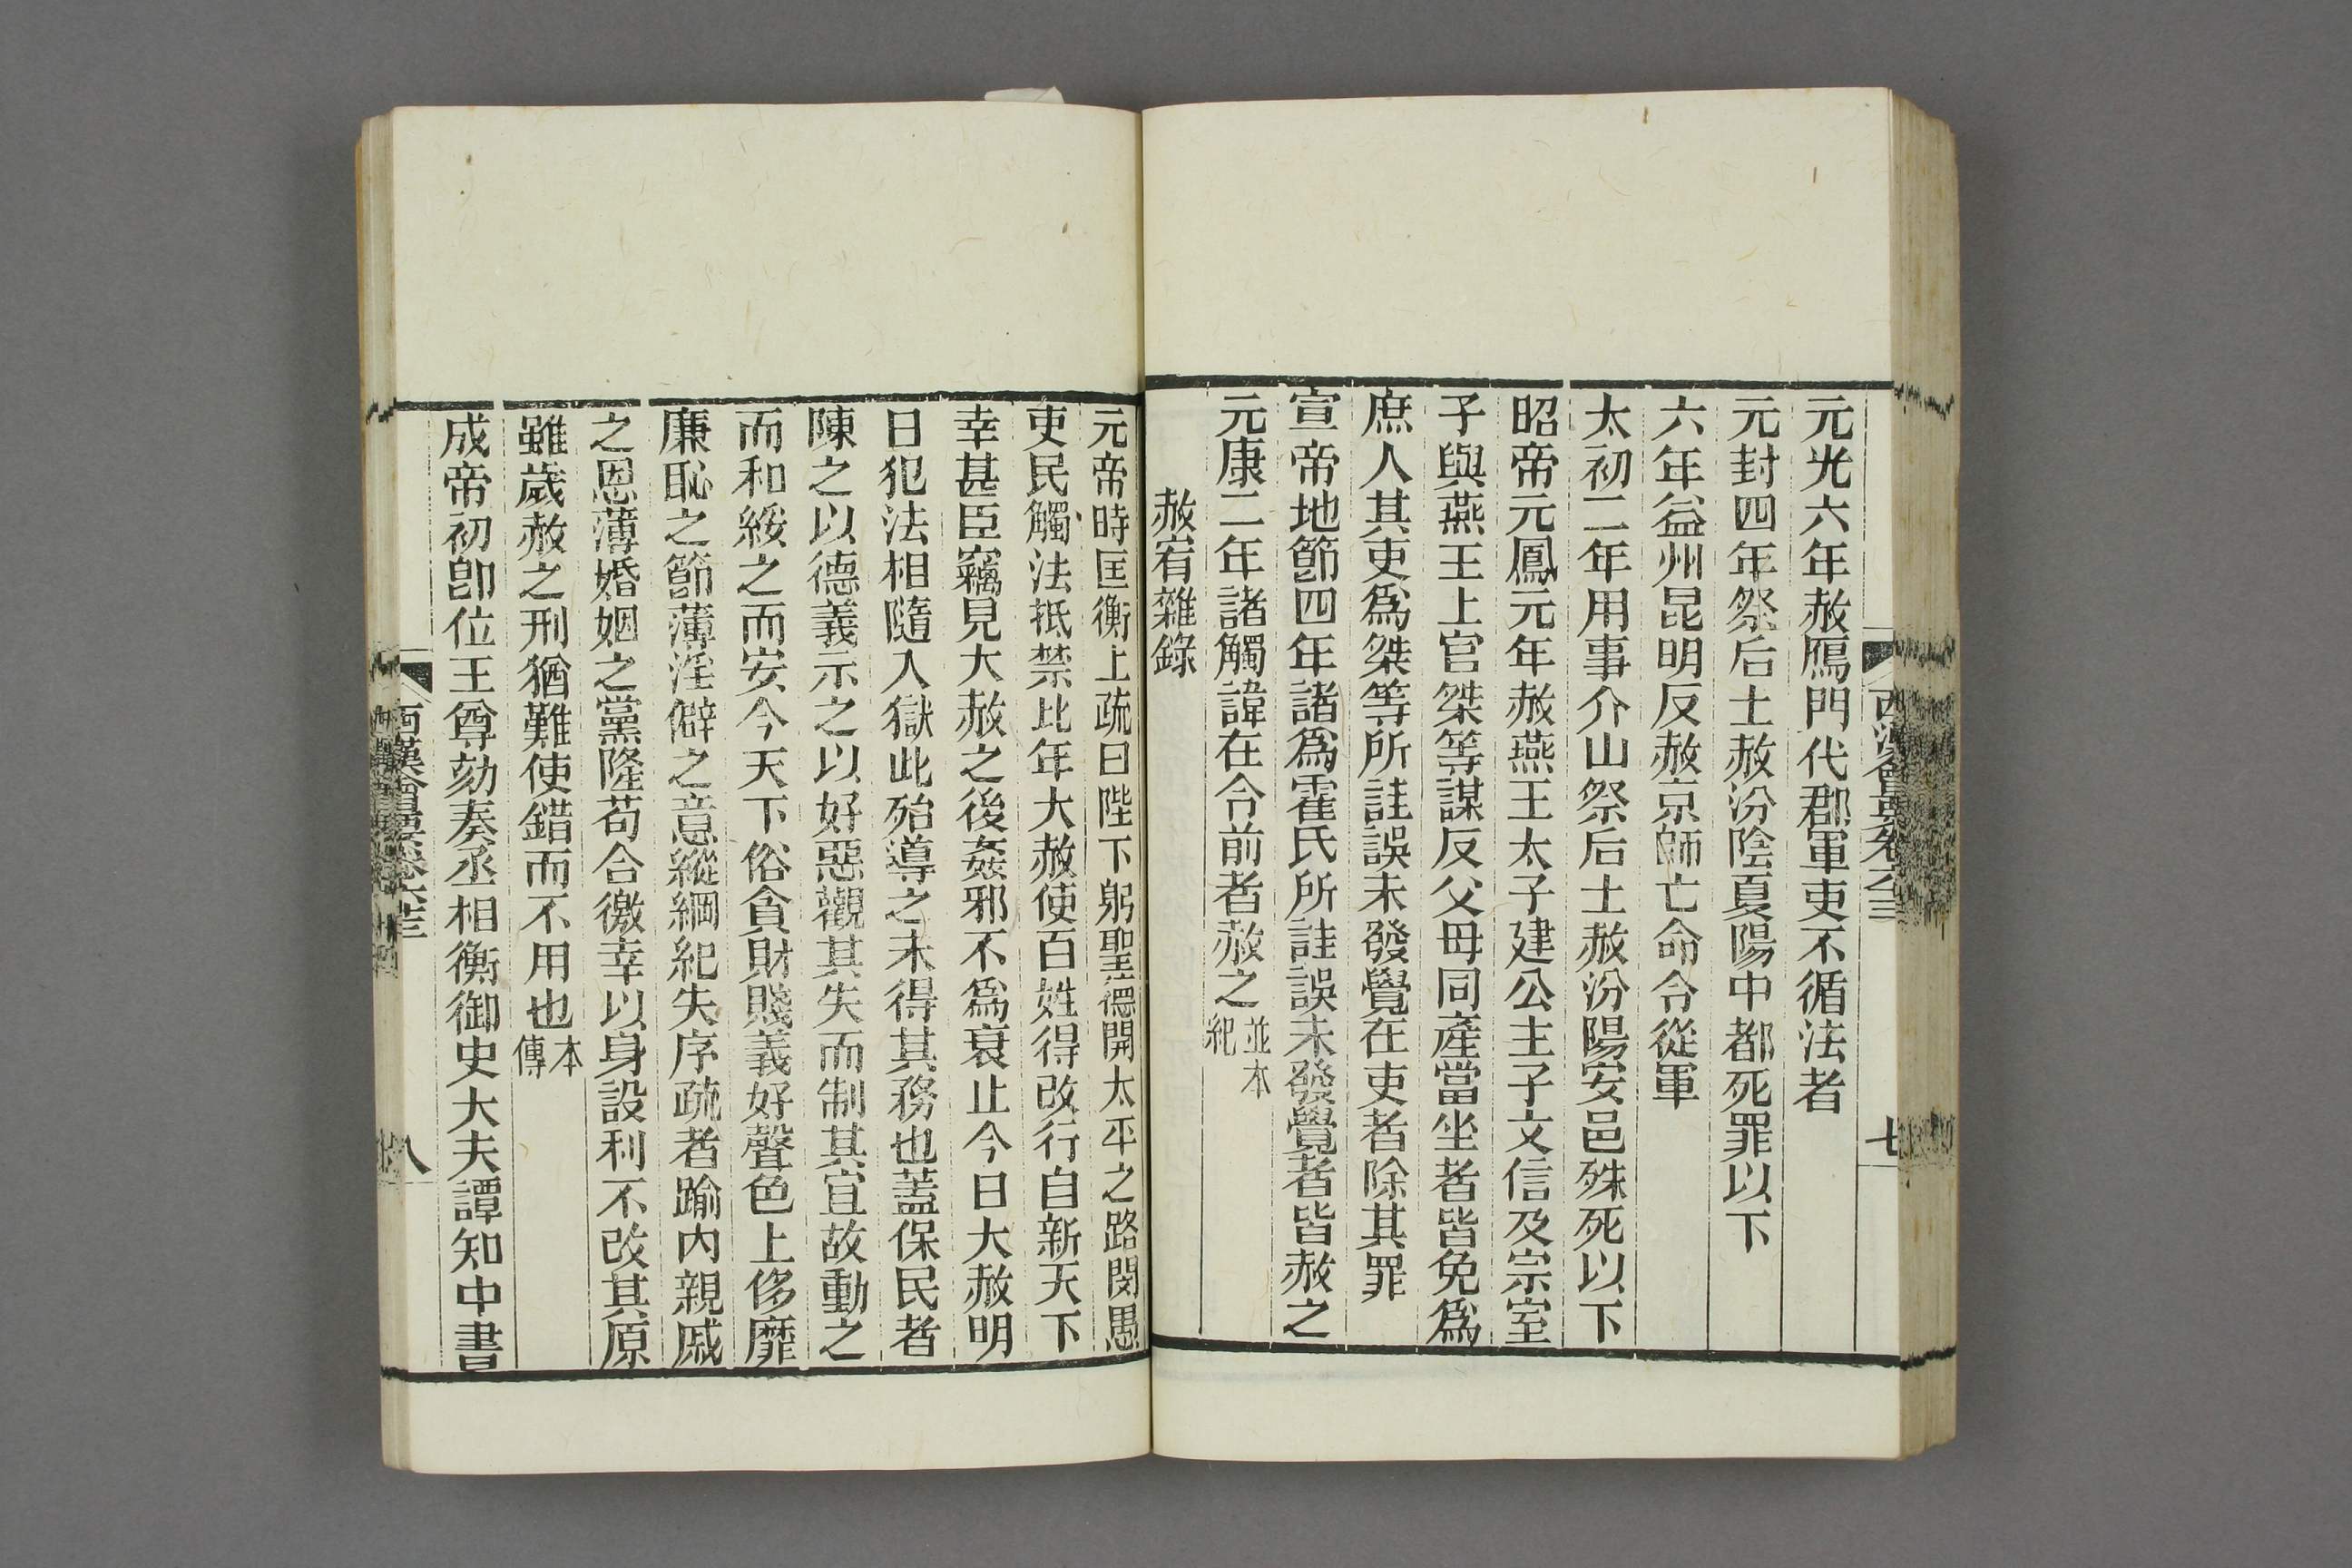 元光六年赦鴈門代郡軍吏不循法者
元封四年祭后土赦汾陰夏陽中都死罪以下
六年益州昆明反赦京師亡命令從軍
太初二年用事介山祭后土赦汾陽安邑殊死以下
昭帝元鳳元年赦燕王太子建公主子文信及宗室
子與燕王上官桀等謀反父母同產當坐者皆免爲
庶人其吏爲桀等所詿誤未發覺在吏者除其罪
宣帝地節四年諸爲霍氏所詿誤未發覺者皆赦之
元康二年諸觸諱在令前者赦之並本紀
赦宥雜錄
元帝時匡衡上疏曰陛下躬聖德開太平之路閔愚
吏民觸法抵禁比年大赦使百姓得改行自新天下
幸甚臣竊見大赦之後姦邪不爲衰止今日大赦明
日犯法相隨入獄此殆導之未得其務也蓋保民者
陳之以德義示之以好惡觀其失而制其宜故動之
而和綏之而安今天下俗貪財賤義好聲色上侈靡
廉恥之節薄淫僻之意縱綱紀失序疏者踰內親戚
之恩薄婚姻之黨隆苟合徼幸以身設利不改其原
雖歲赦之刑猶難使錯而不用也本傳
成帝初卽位王尊劾奏丞相衡御史大夫譚知中書
西漢會要卷六十三
八